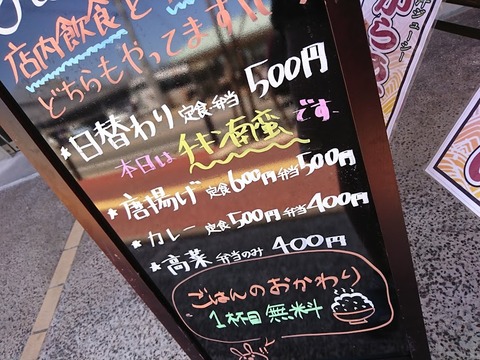 店内飲食と
どちらもやってます!!
★日替わり 定食 弁当 500円
本日は チキン南蛮 です。
★唐揚げ 定食600円 弁当500円
★カレー 定食500円 弁当400円
★高菜 弁当のみ 400円
ごはんのおかわり
1杯目 無料